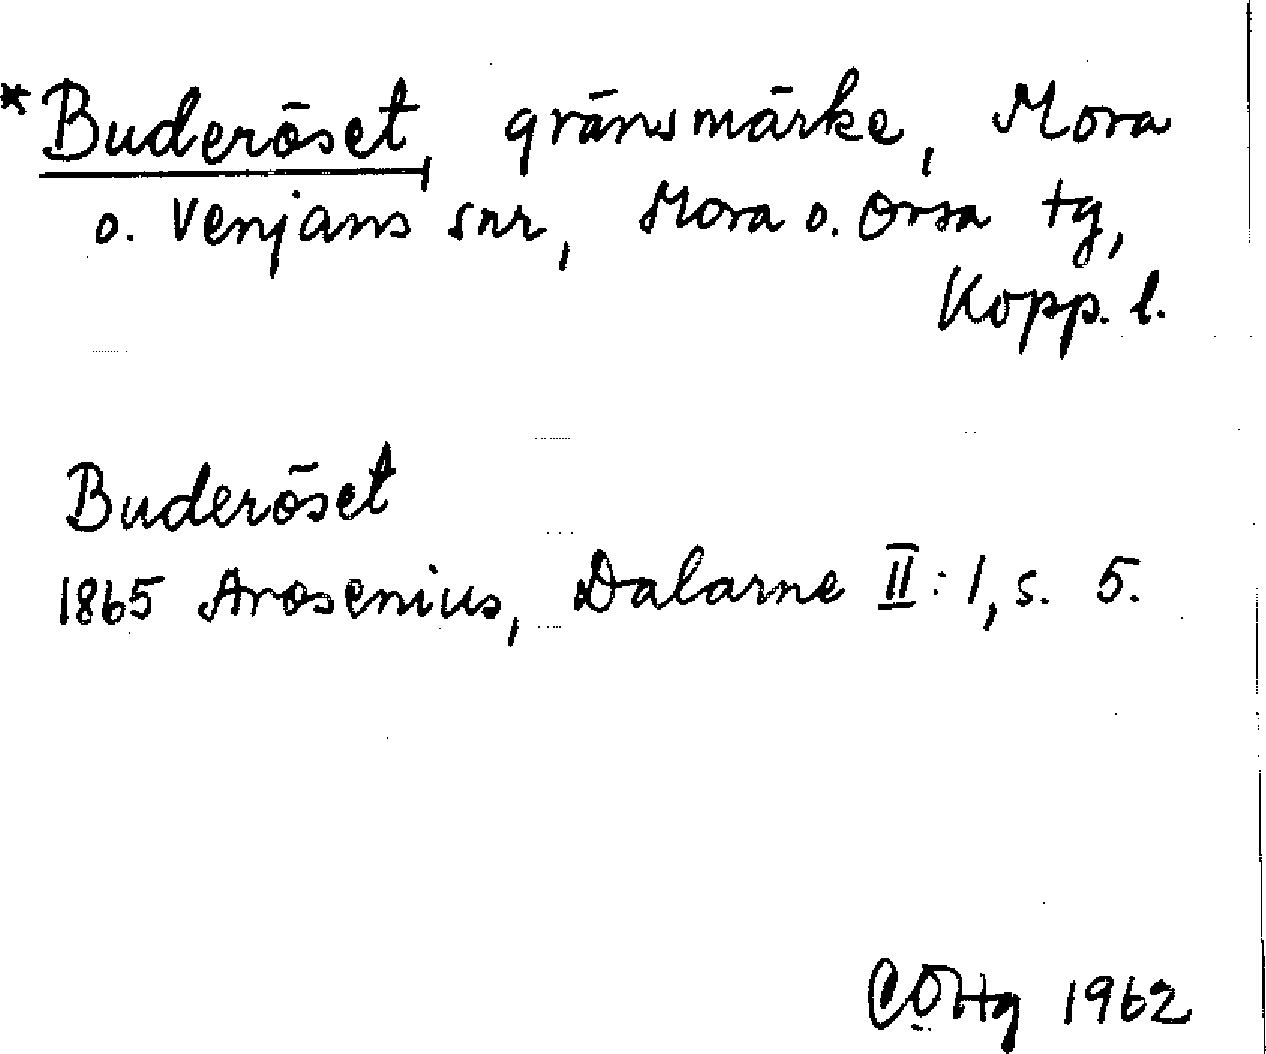 *Buderöset, gränsmärke, Mora
o. Venjans snr, Mora o. Orsa tg,
Kopp. l.
Buderöset
1865 Arosenius, Dalarne II:1, s. 5.
CÖHg 1962